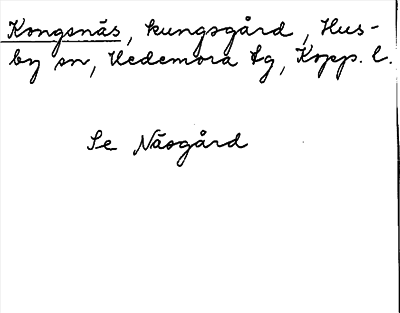 Kongsnäs, kungsgård, Hus-
by sn, Hedemora tg, Kopp. l.
Se Näsgård